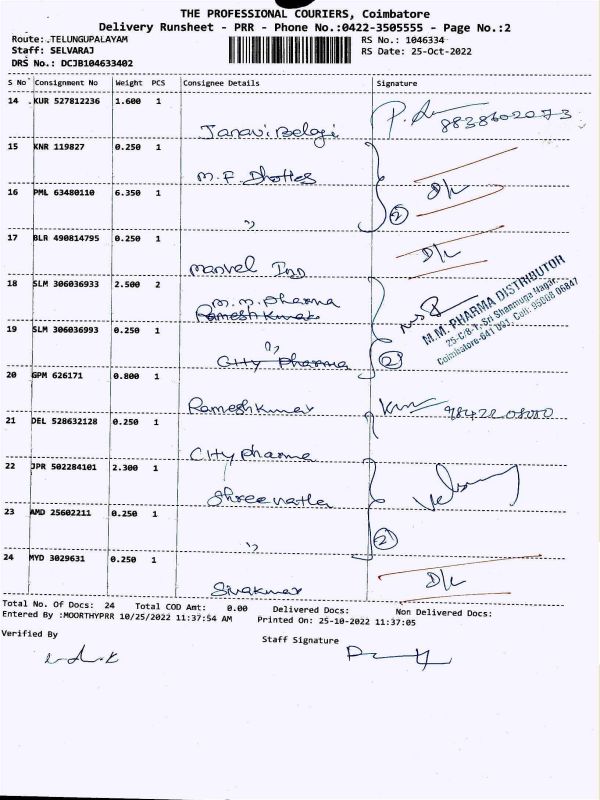 THE PROFESSIONAL COURIERS, Coimbatore
Delivery Runsheet - PRR - Phone No.:0422-3505555 - Page No.:2
Route:.TELUNGUPALAYAM RS No.: 1046334
Staff: SELVARAJ RS Date: 25-Oct-2022
DRS No.: DCJB104633402
S No Consignment No Weight PCS Consignee Details Signature
14 KUR 527812236 1.600 1
8838602073
Janavi Belagi
15 KNR 119827 0.250 1
M.F. Dhottes
16 PML 63480110 6.350 1 D/L
" 2
17 BLR 490814795 0.250 1 D/L
Marvel Inn
18 SLM 306036933 2.500 2
M.M. Pharma
Ramesh Kumar
M.M. PHARMA DISTRIBUTOR
25-C/8-T-Sri Shanmuga Nagar,
Coimbatore-641 001 Cell: 95008 06847
19 SLM 306036993 0.250 1
" 2
City Pharma
20 GPM 626171 0.800 1
Rameshkumar
21 DEL 528632128 0.250 1
City pharma
22 JPR 502284101 2.300 1
Shreenatha
23 AMD 25602211 0.250 1
" 2
24 MYD 3029631 0.250 1 D/L
Sivakumar
Total No. Of Docs: 24 Total COD Amt: 0.00 Delivered Docs: Non Delivered Docs:
Entered By :MOORTHYPRR 10/25/2022 11:37:54 AM Printed On: 25-10-2022 11:37:05
Verified By Staff Signature